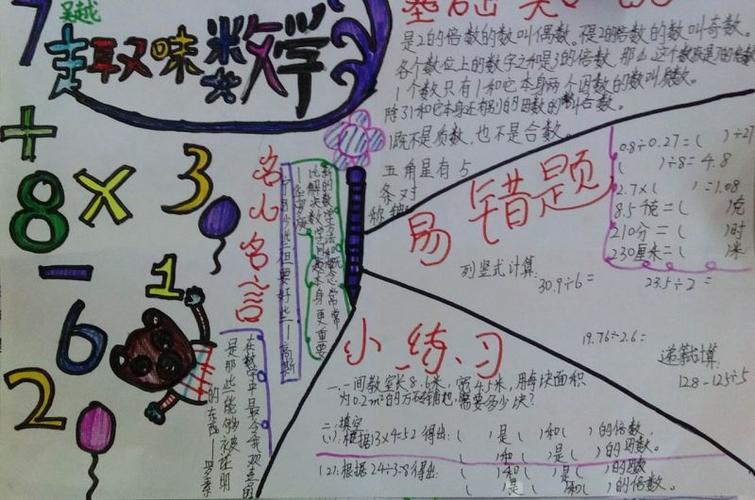 吴越
趣味数学
7
+
8 × 3
-
6
1
2
是2的倍数的数叫偶数。不是2的倍数的数叫奇数。
各个数位上的数字之和是3的倍数,那么这个数就是3的倍数
1个数只有1和它本身两个因数的数叫质数。
除了1和它本身还有别的因数的数叫合数。
1既不是质数,也不是合数。
五角星有5
条对
称轴
易错题
0.8÷0.27=( )÷27
( )÷8=4.8
2.7×( )=1.08
8.5千克=( )克
210分=( )时
230厘米=( )米
列竖式计算:
30.9÷6=
23.5÷2=
19.76÷2.6=
递等式计算.
128-125÷5
名人名言
新的数学方法和概念,常常
比解决数学问题本身更重要
华罗庚
宁可少些,但要好些——高斯
在数学中最令我欢喜的
是那些能够被证明
的东西——罗素
小练习
一、一间教室长8.6米,宽4.5米,用每块面积
为0.2m²的方砖铺地,需要多少块?
二、填空
(1).根据13×4=52得出:( )是( )和( )的倍数,
( )和( )是( )的因数。
(2).根据24÷3=8得出:( )和( )是( )的因数
( )是( )和( )的倍数。